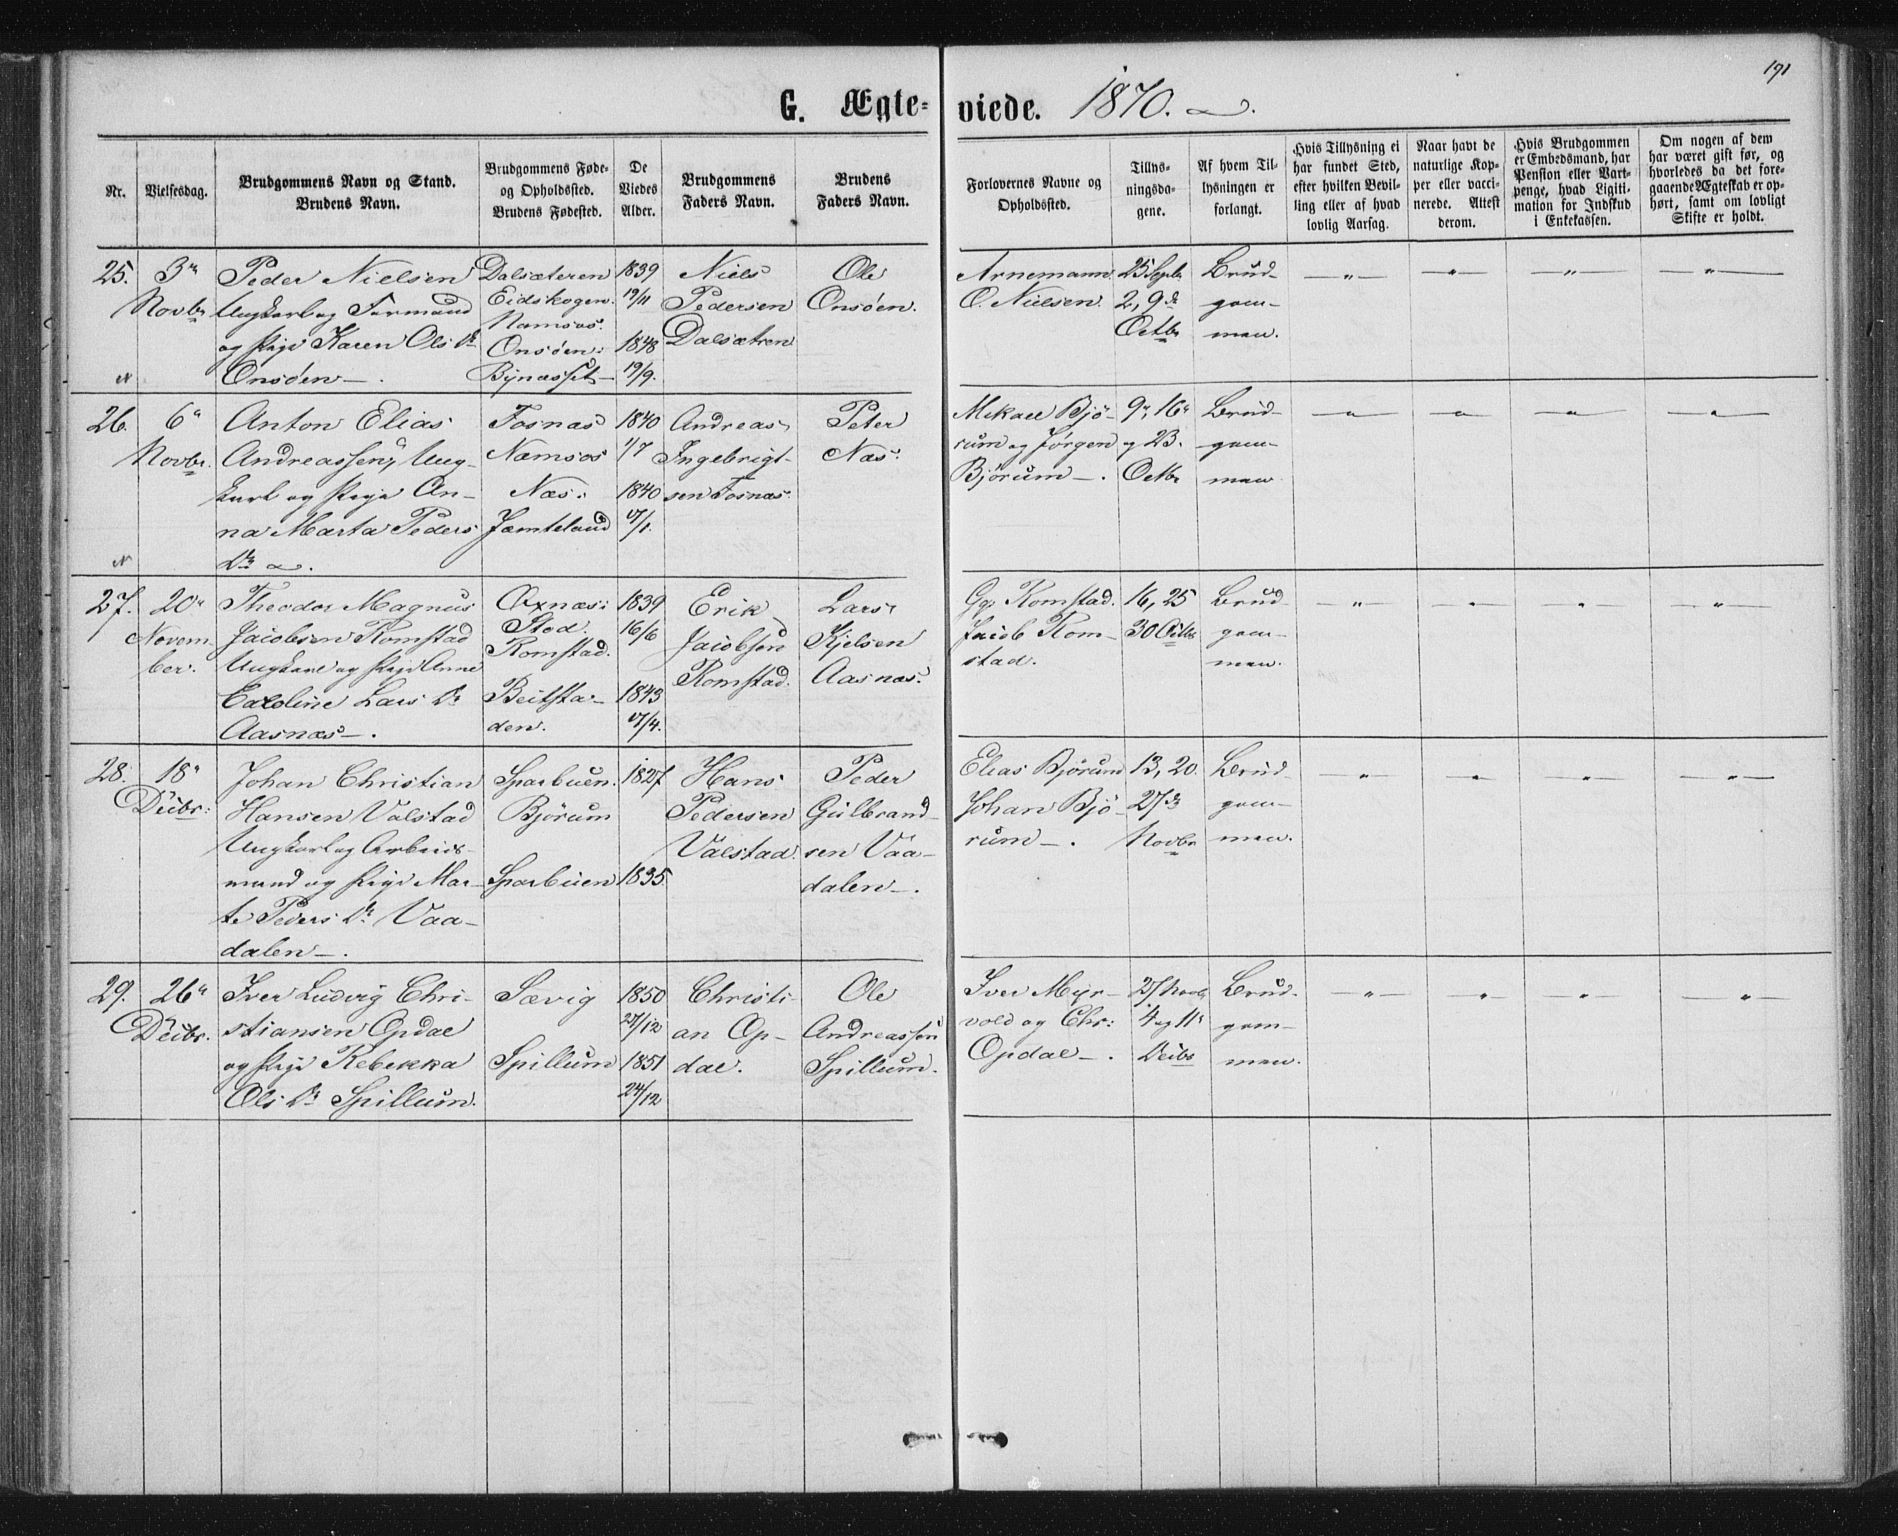 191
G. Ægte-viede. 1870.
Nr.
Vielsesdag.
Brudgommens Navn og Stand.
Brudens Navn.
Brudgommens Føde-
og Opholdssted.
Brudens Fødested.
De
Viedes
Alder.
Brudgommens
Faders Navn.
Brudens
Faders Navn.
Forlovernes Navne og
Opholdssted.
Tillys-
ningsda-
gene.
Af hvem Til-
lysningen er
forlangt.
Hvis Tillysning ei
har fundet Sted,
efter hvilken Bevil-
ling eller af hvad
lovlig Aarsag.
Naar havt de
naturlige Kop-
per eller vacci-
nerede. Attest
derom.
Hvis Brudgommen
er Embedsmand, har
Pension eller Vart-
penge, hvad Ligiti-
mation for Indskud
i Enkekassen.
Om nogen af dem
har været gift før, og
hvorledes da det fore-
gaaende Ægteskab er op-
hørt, samt om lovligt
Skifte er holdt.
25.
3"
Novbr
Peder Nielsen
Ungkarl og Formand
og Pige Karen Ols Dr
Onsöen —.
Dalsæteren
Eidskogen.
Namsos.
Onsöen:
Bynæsset
1839
19/11
1848
19/9.
Niels
Pedersen
Dalsætren
Ole
Onsöen.
Arnemann
O. Nielsen.
25 Septb
2, 9de
Octbr
Brud-
gom-
men.
— " — — " — — " — — " —
26.
6"
Novbr.
Anton Elias
Andreassen, Ung-
karl og Pige An-
na Marta Peders
Dr.
Fosnæs
Namsos
Næs:
Jæmteland
1840
1/7
1840
17/1.
Andreas
Ingebrigt-
sen Fosnæs.
Peter
Næs.
Mikael Bjö-
rum og Jørgen
Bjørum —.
9", 16"
og 23.
Octbr
Brud-
gom-
men
— " — — " — — " — — " —
27.
20"
Novem
ber.
Theodor Magnus
Jacobsen Romstad
Ungkarl og Pige Anne
Caroline Lars Dr
Aasnæs —.
Stod.
Romstad.
Beitsta-
den.
1839
16/6
1843
17/4.
Erik
Jacobsen
Romstad.
Lars
Kjelsen
Aasnæs.
Romstad.
Jacob Rom-
stad.
16, 25
30 Octbr
Brud
gom-
men.
— " — — " — — " — — " —
28.
18"
Decbr:
Johan Christian
Hansen Valstad
Ungkarl og Arbeids-
mand og Pige Mar-
te Peders Dr Vaa-
dalen —.
Sparbuen.
Bjørum
Sparbuen
1827
1835.
Hans
Pedersen
Valstad.
Peder
Gulbrand-
sen Vaa-
dalen —.
Elias Bjørum
Johan Bjö-
rum —.
13, 20.
27de
Novbr
Brud
gom-
men.
— " — — " — — " — — " —
29.
26"
Decbr.
Iver Ludvig Chri-
stiansen Opdal
og Pige Rebekka
Ols Dr Spillum.
Sævig
Spillum
1850
27/12
1851
24/12
Christi-
an Op-
dal.
Ole
Andreassen
Spillum.
Iver Myr-
vold og Chr:
Opdal —.
27 Novbr
4 og 11"
Decbr
Brud-
gom-
men.
— " — — " — — " — — " —